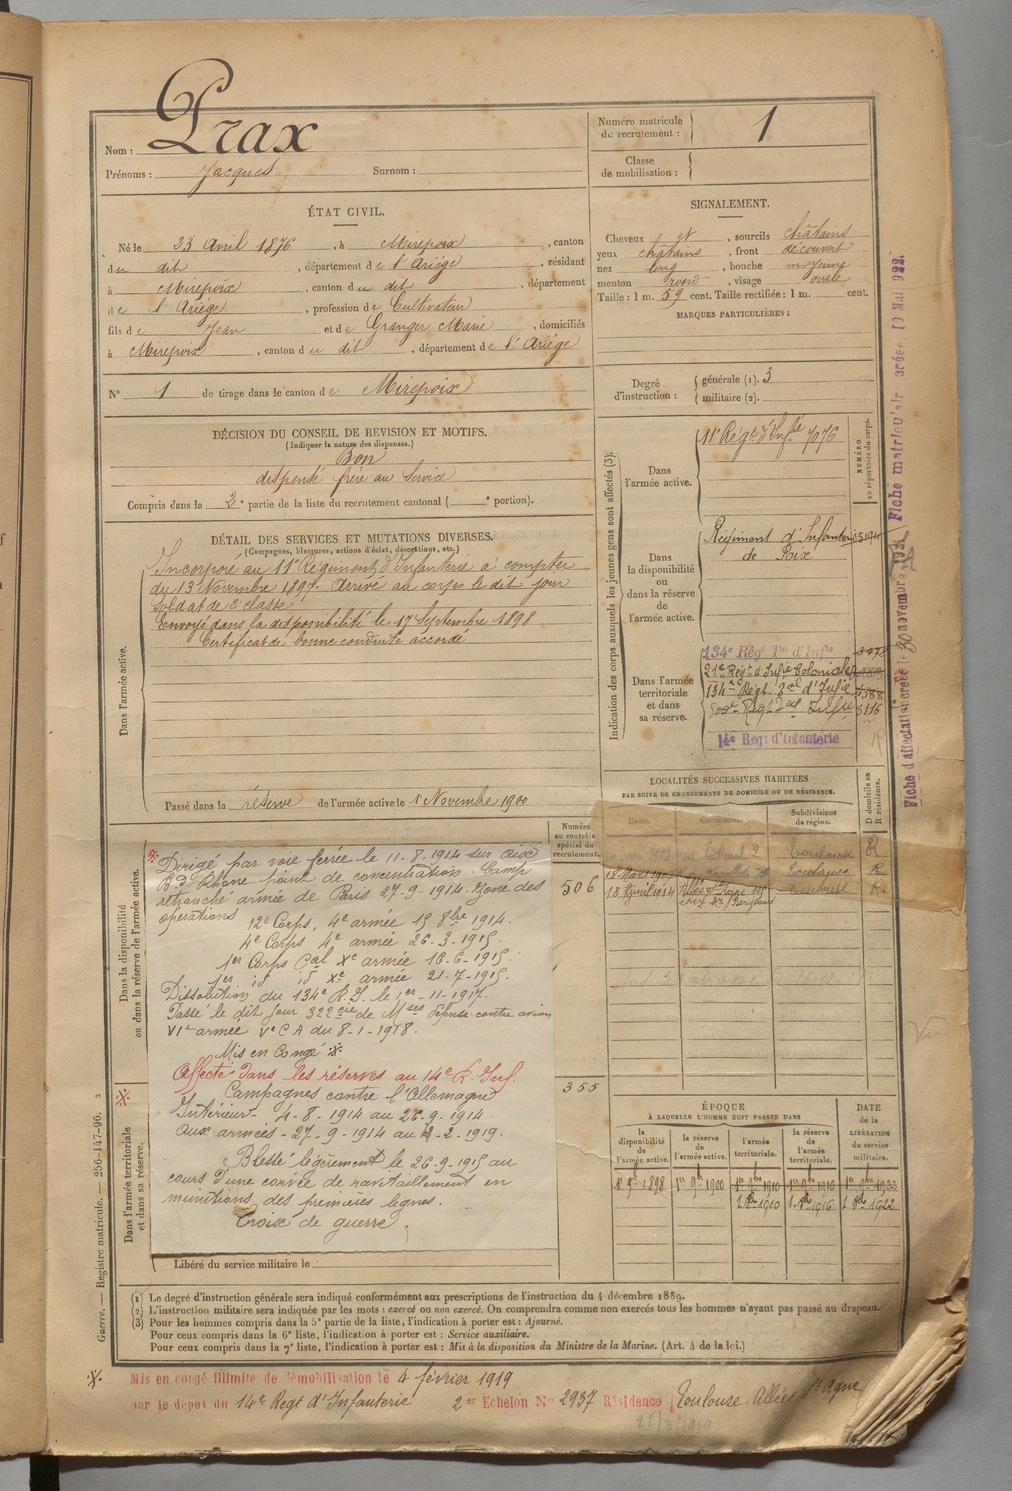 Nom : Prax
Prénoms : Jacques Surnom :
Numéro matricule de recrutement : 1
Classe de mobilisation :
ÉTAT CIVIL.
Né le 23 Avril 1876, à Mirepoix, canton
du dit, département de l'Ariége, résidant
à Mirepoix, canton du dit, département
de l'Ariége, profession de Cultivateur
fils de Jean et de Granger Marie, domiciliés
à Mirepoix, canton du dit, département de l'Ariége
N° 1 de tirage dans le canton de Mirepoix
SIGNALEMENT.
Cheveux et, sourcils châtains
yeux châtains, front découvert
nez long, bouche moyenne
menton rond, visage ovale
Taille : 1 m. 59 cent. Taille rectifiée : 1 m. cent.
MARQUES PARTICULIÈRES :
Degré d'instruction : générale (1). 3
militaire (2).
DÉCISION DU CONSEIL DE REVISION ET MOTIFS.
(Indiquer la nature des dispenses.)
Bon
dispensé frère au Service
Compris dans la 2e partie de la liste du recrutement cantonal ( e portion).
DÉTAIL DES SERVICES ET MUTATIONS DIVERSES.
(Campagnes, blessures, actions d'éclat, décorations, etc.)
Dans l'armée active.
Incorporé au 11e Régiment d'Infanterie à compter
du 13 Novembre 1897. Arrivé au corps le dit jour
Soldat de 2e classe
Envoyé dans la disponibilité le 17 Septembre 1898
Certificat de bonne conduite accordé
Passé dans la réserve de l'armée active le 1 Novembre 1900
Indication des corps auxquels les jeunes gens sont affectés (3).
NUMÉRO au répertoire du corps.
Dans l'armée active.
11e Régt. d'Infie 7076
Dans la disponibilité ou dans la réserve de l'armée active.
Régiment d'Infanterie
de Foix
Dans l'armée territoriale et dans sa réserve.
134e Régt Tal d'Infie
21e Régt d'Infie Coloniale
134e Régt. Ral d'Infie
Régt Infie 8116
14e Regt d'Infanterie
Fiche d'affectation créée le 30 novembre 1921
Fiche matriculair créée 10 Mai 922.
LOCALITÉS SUCCESSIVES HABITÉES
PAR SUITE DE CHANGEMENTS DE DOMICILE OU DE RÉSIDENCE.
Dates. Communes. Subdivisions de région. D domicile ou R résidence.
Toulouse R
18 Mars Toulouse R
18 Avril 1914 Allée St Agne R
Numéro au contrôle spécial du recrutement.
506
355
Dans la disponibilité ou dans la réserve de l'armée active.
Dirigé par voie ferrée le 11-8-1914 sur Aix
B. d. Rhone point de concentration. Camp
retranché armée de Paris 27-9-1914. Zone des
opérations
12e Corps, 4e armée 15 8bre 1914.
4e Corps 4e armée 26-3-1915.
1er Corps Cal Xe armée 16-6-1915.
1er id id Xe armée 21-7-1915.
Dissolution du 134e R.I. le 1er-11-1917.
Passé le dit jour 322 Cie de Mses défense contre avion
VIe armée Ve CA du 8-1-1918.
Mis en Congé
Affecté dans les réserves au 14e R. Inf.
Campagnes contre l'Allemagne
Intérieur - 4-8-1914 au 26-9-1914.
Aux armées - 27-9-1914 au -2-1919.
Blessé légèrement le 26-9-1915 au
cours d'une corvée de ravitaillement en
munitions des premières lignes.
Croix de guerre
Dans l'armée territoriale et dans sa réserve.
Libéré du service militaire le
ÉPOQUE
À LAQUELLE L'HOMME DOIT PASSER DANS
DATE de la LIBÉRATION du service militaire.
la disponibilité de l'armée active. la réserve de l'armée active. l'armée territoriale. la réserve de l'armée territoriale.
1898 1er 9bre 1900 1er 9bre 1910 1er 9bre 1916
1 8bre 1910 1 8bre 1916 1 8bre 1922
(1) Le degré d'instruction générale sera indiqué conformément aux prescriptions de l'instruction du 4 décembre 1889.
(2) L'instruction militaire sera indiquée par les mots : exercé ou non exercé. On comprendra comme non exercés tous les hommes n'ayant pas passé au drapeau.
(3) Pour les hommes compris dans la 5e partie de la liste, l'indication à porter est : Ajourné.
Pour ceux compris dans la 6e liste, l'indication à porter est : Service auxiliaire.
Pour ceux compris dans la 7e liste, l'indication à porter est : Mis à la disposition du Ministre de la Marine. (Art. 4 de la loi.)
Guerre. — Registre matricule. — 256-147-96. 2
Mis en congé illimite de démobilisation le 4 février 1919
par le dépot du 14e Regt d'Infanterie 2e Echelon N° 2937 Résidence Toulouse. Allées St Agne
22/3/1919